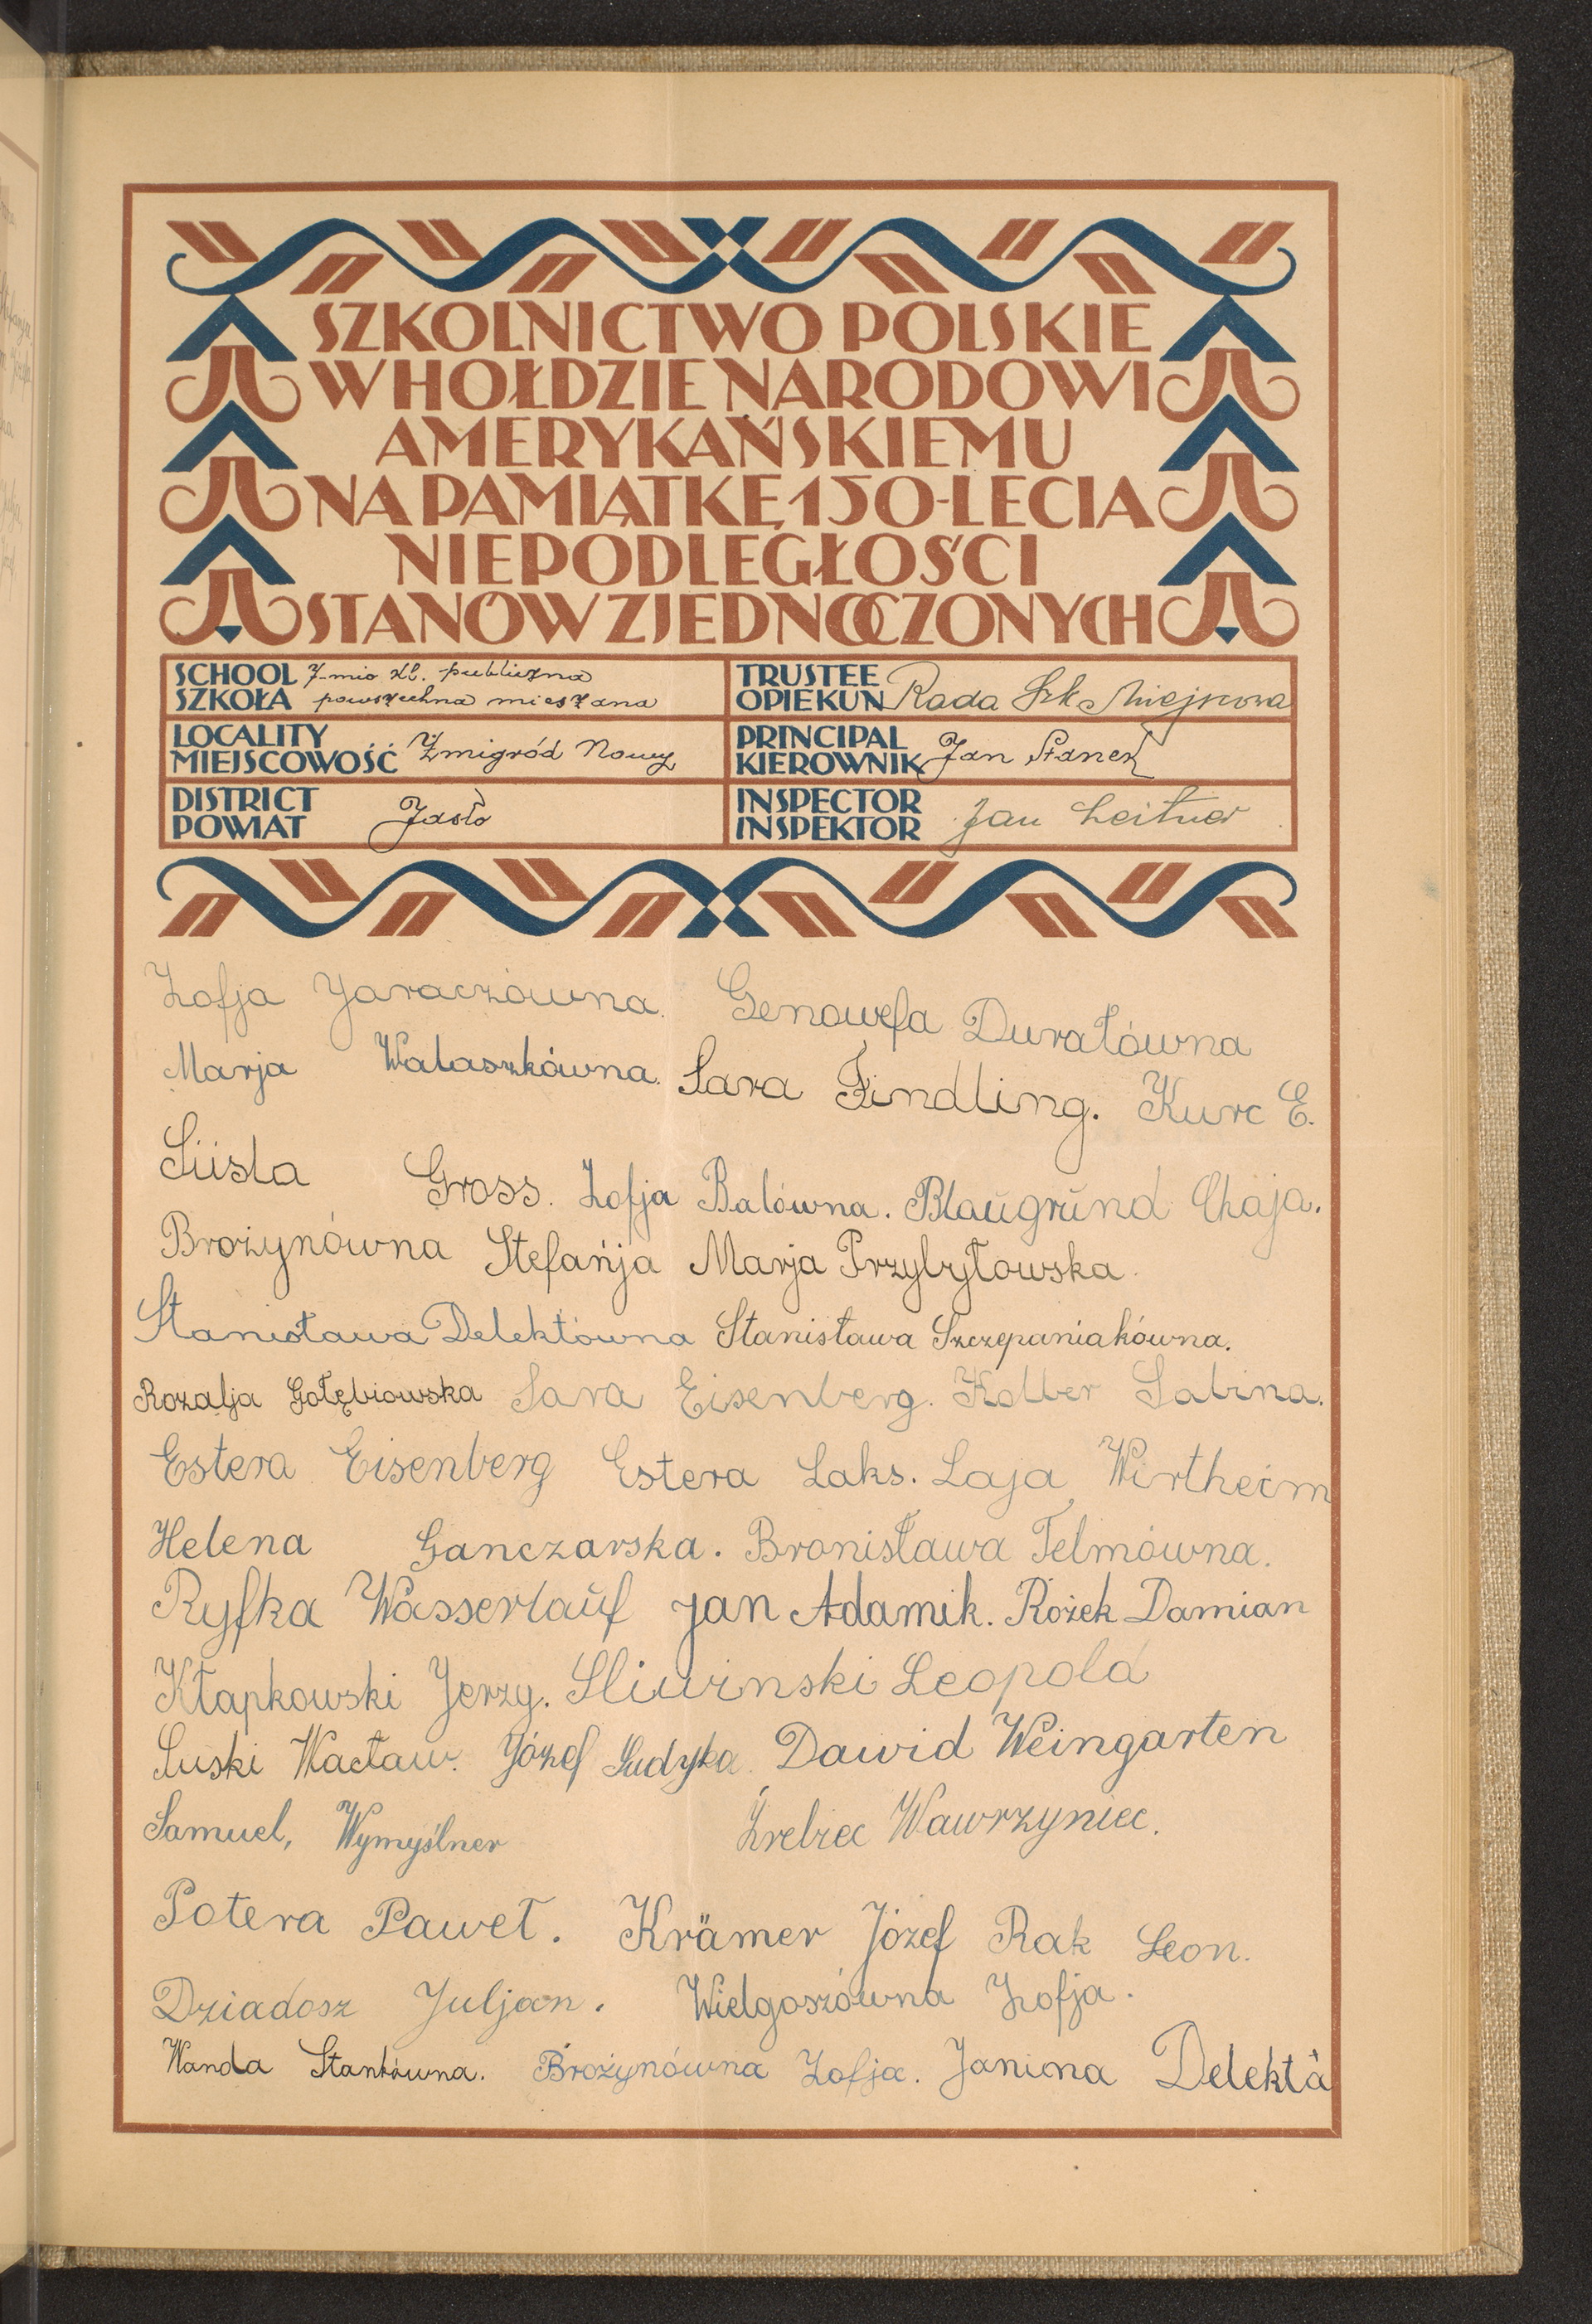 SZKOLNICTWO POLSKIE
W HOŁDZIE NARODOWI
AMERYKAŃSKIEMU
NA PAMIĄTKĘ 150-LECIA
NIEPODLEGŁOŚCI
STANÓW ZJEDNOCZONYCH
SCHOOL 7-mio kl. publiczna
SZKOŁA powszechna mieszana
TRUSTEE
OPIEKUN Rada Szk. Miejscowa
LOCALITY
MIEJSCOWOŚĆ Żmigród Nowy
PRINCIPAL
KIEROWNIK Jan Stanek
DISTRICT
POWIAT Jasło
INSPECTOR
INSPEKTOR Jan Leitner
Zofja Jaraczówna. Genowefa Durałówna
Marja Walaszkówna. Sara Findling. Kurc E.
Süsla Gross. Zofja Balówna. Blaugrund Chaja.
Brożynówna Stefanja Marja Przybyłowska.
Stanisława Delektówna Stanisława Szczepaniakówna.
Rozalja Gołębiowska Sara Eisenberg. Kolber Sabina.
Estera Eisenberg Estera Laks. Laja Wirtheim
Helena Ganczarska. Bronisława Telmówna.
Ryfka Wasserlauf Jan Adamik. Rożek Damian
Kłapkowski Jerzy. Sliwinski Leopold
Suski Wacław. Józef Gudyka. Dawid Weingarten
Samuel, Wymyślner Źrebiec Wawrzyniec.
Potera Paweł. Krämer Józef Rak Leon.
Dziadosz Juljan. Wielgoszówna Zofja.
Wanda Stankówna. Brożynówna Zofja. Janina Delekta